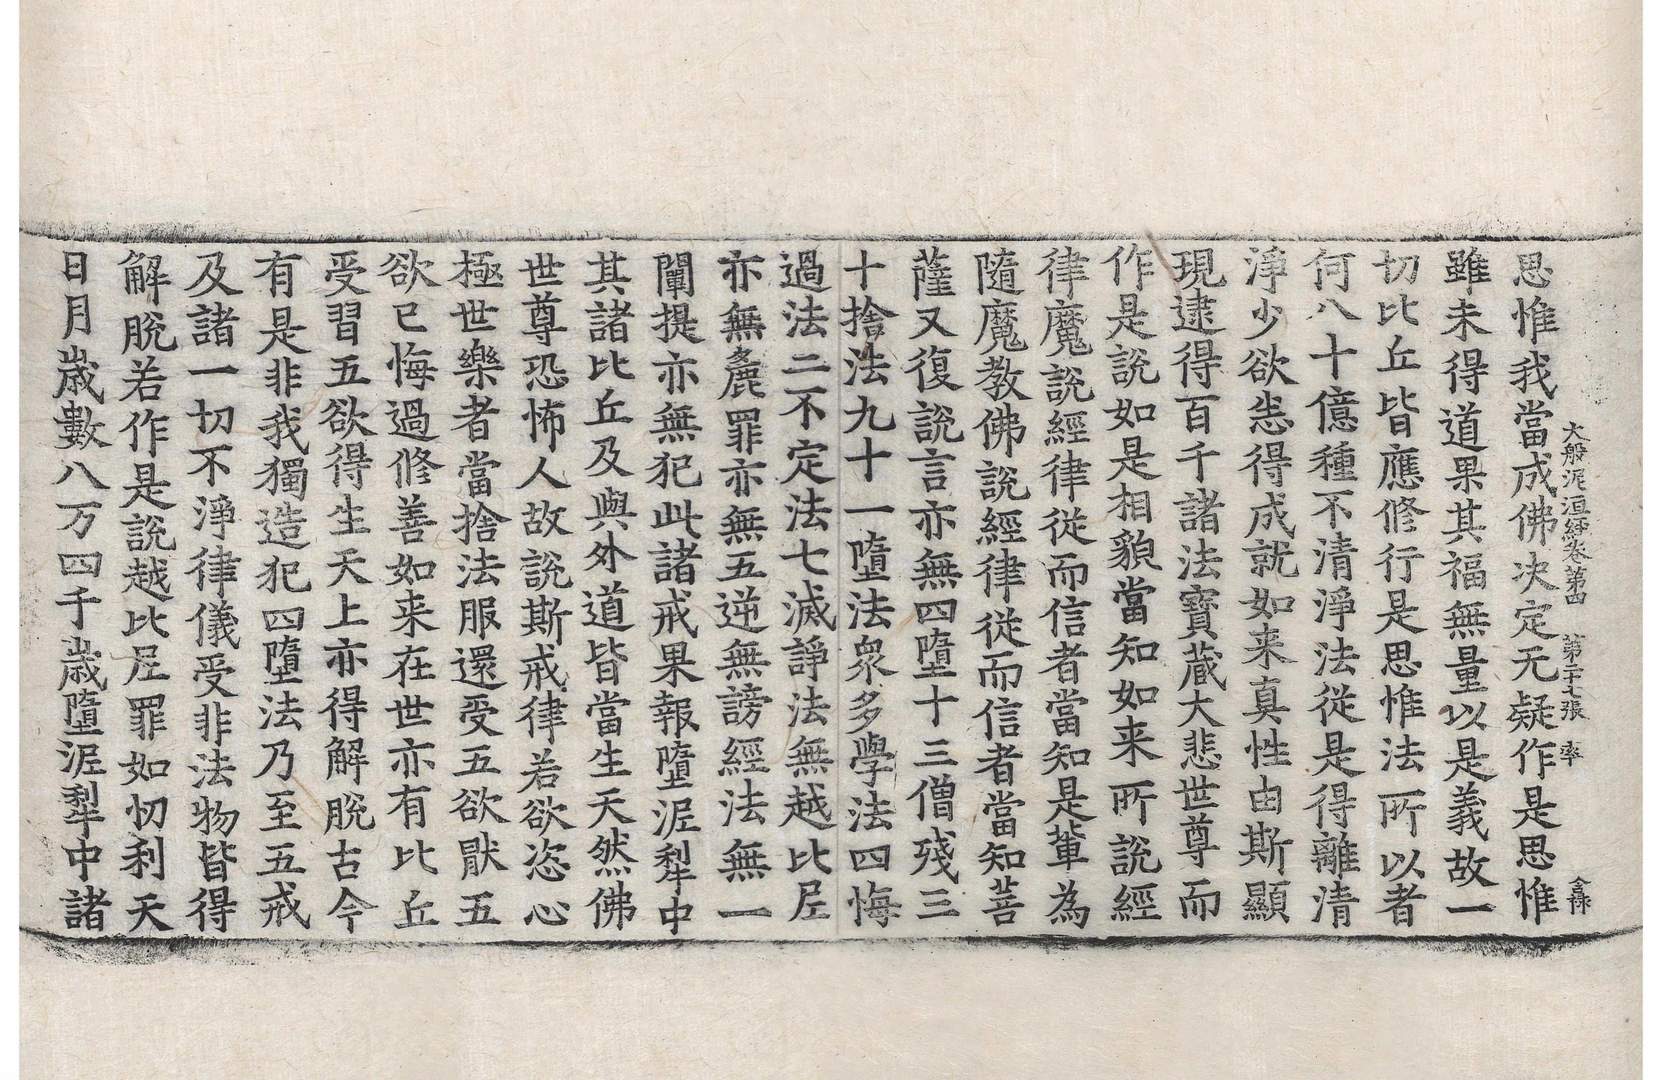 大般泥洹經卷第四 第二十七張 率 仝祿
思惟我當成佛决定无疑作是思惟
雖未得道果其福無量以是義故一
切比丘皆應修行是思惟法所以者
何八十億種不清淨法從是得離清
淨少欲恙得成就如来真性由斯顯
現逮得百千諸法寶蔵大悲世尊而
作是說如是相貌當知如来所說經
律魔說經律從而信者當知是軰為
隨魔教佛說經律從而信者當知菩
薩又復說言亦無四墮十三僧殘三
十捨法九十一墮法衆多學法四悔
過法二不定法七滅諍法無越比𡰱
亦無麁罪亦無五逆無謗經法無一
闡提亦無犯此諸戒果報墮泥犁中
其諸比丘及與外道皆當生天然佛
世尊恐怖人故說斯戒律若欲恣心
極世樂者當捨法服還受五欲猒五
欲已悔過修善如来在世亦有比丘
受習五欲得生天上亦得解脫古今
有是非我獨造犯四墮法乃至五戒
及諸一切不淨律儀受非法物皆得
解脫若作是說越比𡰱罪如忉利天
日月歲數八万四千歲墮泥犁中諸